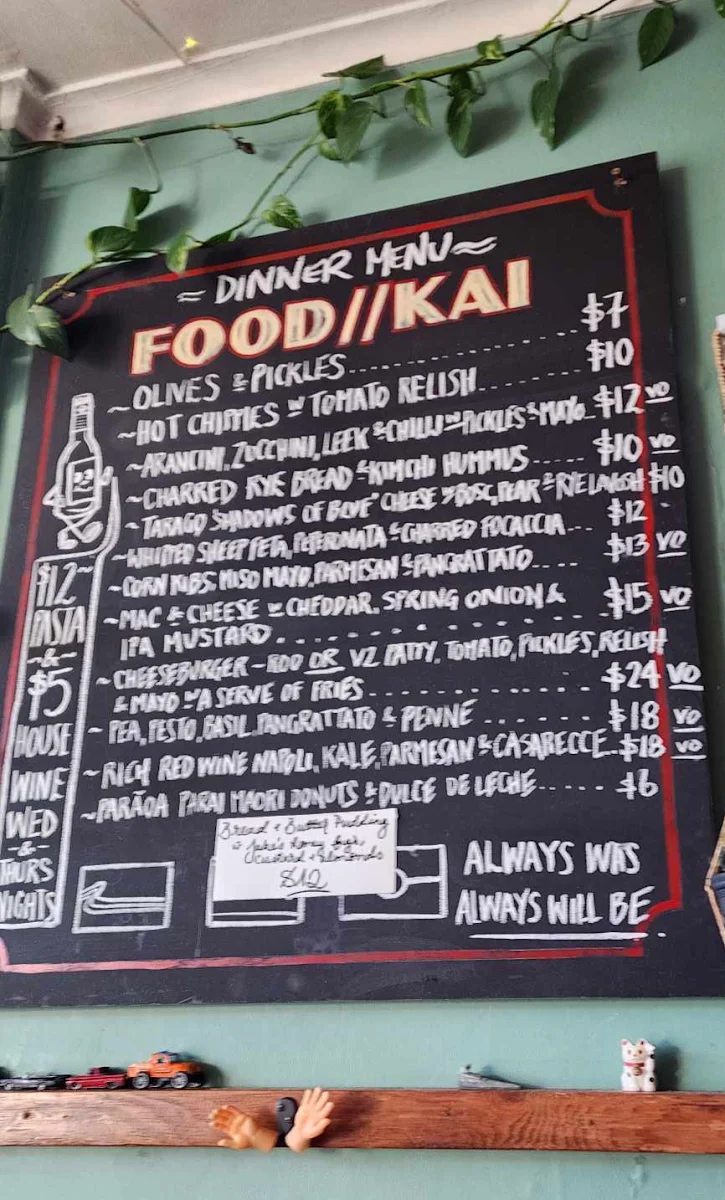 ≈ DINNER MENU ≈
FOOD//KAI
~ OLIVES & PICKLES.................. $7
~ HOT CHIPPIES W TOMATO RELISH....... $10
~ ARANCINI, ZUCCHINI, LEEK & CHILLI W PICKLES & MAYO.. $12 VO
~ CHARRED RYE BREAD & KIMCHI HUMMUS..... $10 VO
~ TARAGO "SHADOWS OF BLUE" CHEESE W BOSC PEAR & RYE LAVOSH $10
~ WHIPPED SHEEP FETA, PEPERONATA & CHARRED FOCACCIA... $12
~ CORN RIBS, MISO MAYO, PARMESAN & PANGRATTATO.... $13 VO
~ MAC & CHEESE W CHEDDAR, SPRING ONION &
IPA MUSTARD.................. $15 VO
~ CHEESEBURGER - ROO OR V2 PATTY, TOMATO, PICKLES, RELISH
& MAYO W A SERVE OF FRIES.............. $24 VO
~ PEA, PESTO, BASIL, PANGRATTATO & PENNE ...... $18 VO
~ RICH RED WINE NAPOLI, KALE, PARMESAN & CASARECCE.. $18 VO
~ PARĀOA PARAI MAORI DONUTS & DULCE DE LECHE..... $6
$12~
PASTA
-&-
$5
HOUSE
WINE
WED
-&-
THURS
NIGHTS
Bread & Butter Pudding
w Jake's honey
custard & almonds
$12
ALWAYS WAS
ALWAYS WILL BE.